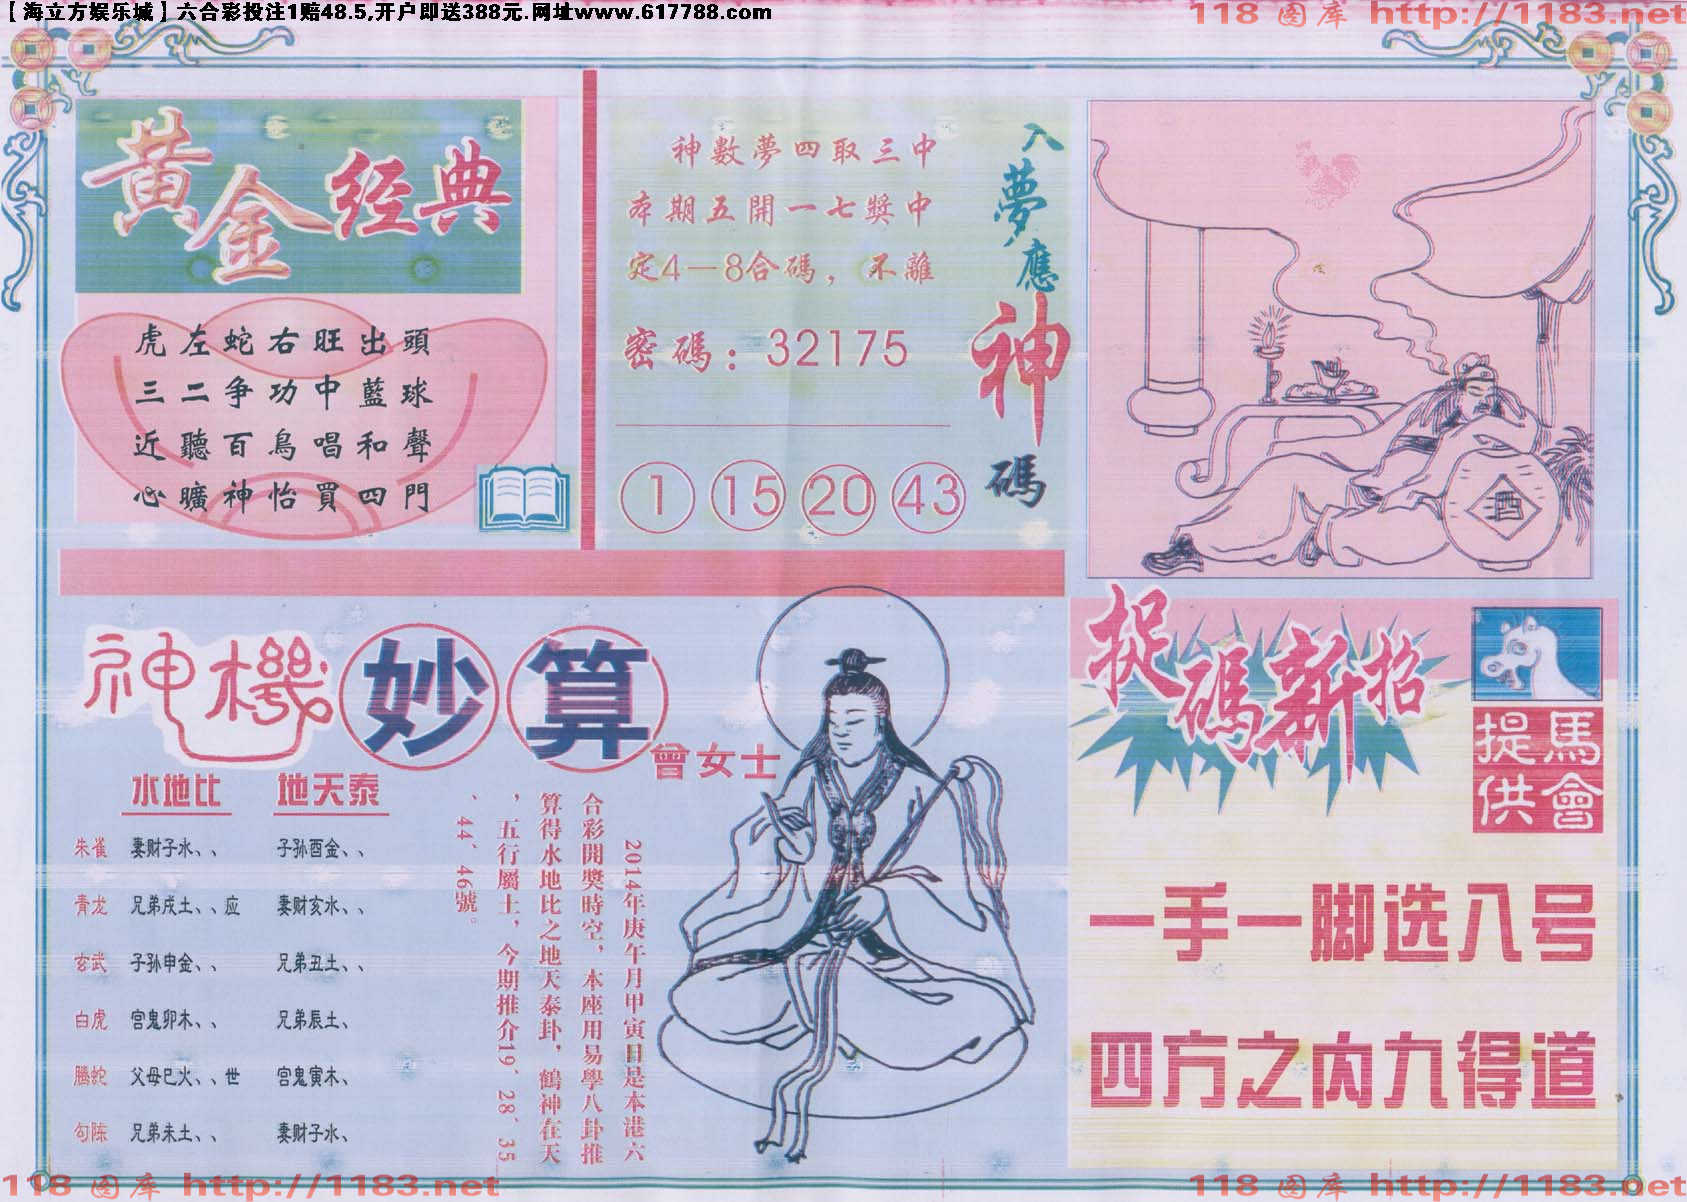 【海立方娱乐城】六合彩投注1赔48.5,开户即送388元.网址www.617788.com
118 图库 http://1183.net
黄金经典
虎左蛇右旺出頭
三二争功中藍球
近聽百鳥唱和聲
心曠神怡買四門
入夢應神碼
神數夢四取三中
本期五開一七獎中
定4—8合碼，不離
密碼：32175
1 15 20 43
酒
神機妙算
曾女士
水地比 地天泰
朱雀 妻财子水、、 子孙酉金、、
青龙 兄弟戌土、、应 妻财亥水、、
玄武 子孙申金、、 兄弟丑土、、
白虎 宫鬼卯木、、 兄弟辰土、
腾蛇 父母巳火、、世 宫鬼寅木、
勾陈 兄弟未土、、 妻财子水、
2014年庚午月甲寅日是本港六
合彩開獎時空，本座用易學八卦推
算得水地比之地天泰卦，鶴神在天
，五行屬土，今期推介19、28、35
、44、46號。
捉碼新招
馬會
提供
一手一脚选八号
四方之内九得道
118 图库 http://1183.net
118 图库 http://1183.net